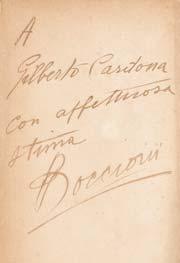 A
Gilberto Cardona
con affettuosa
stima
Boccioni